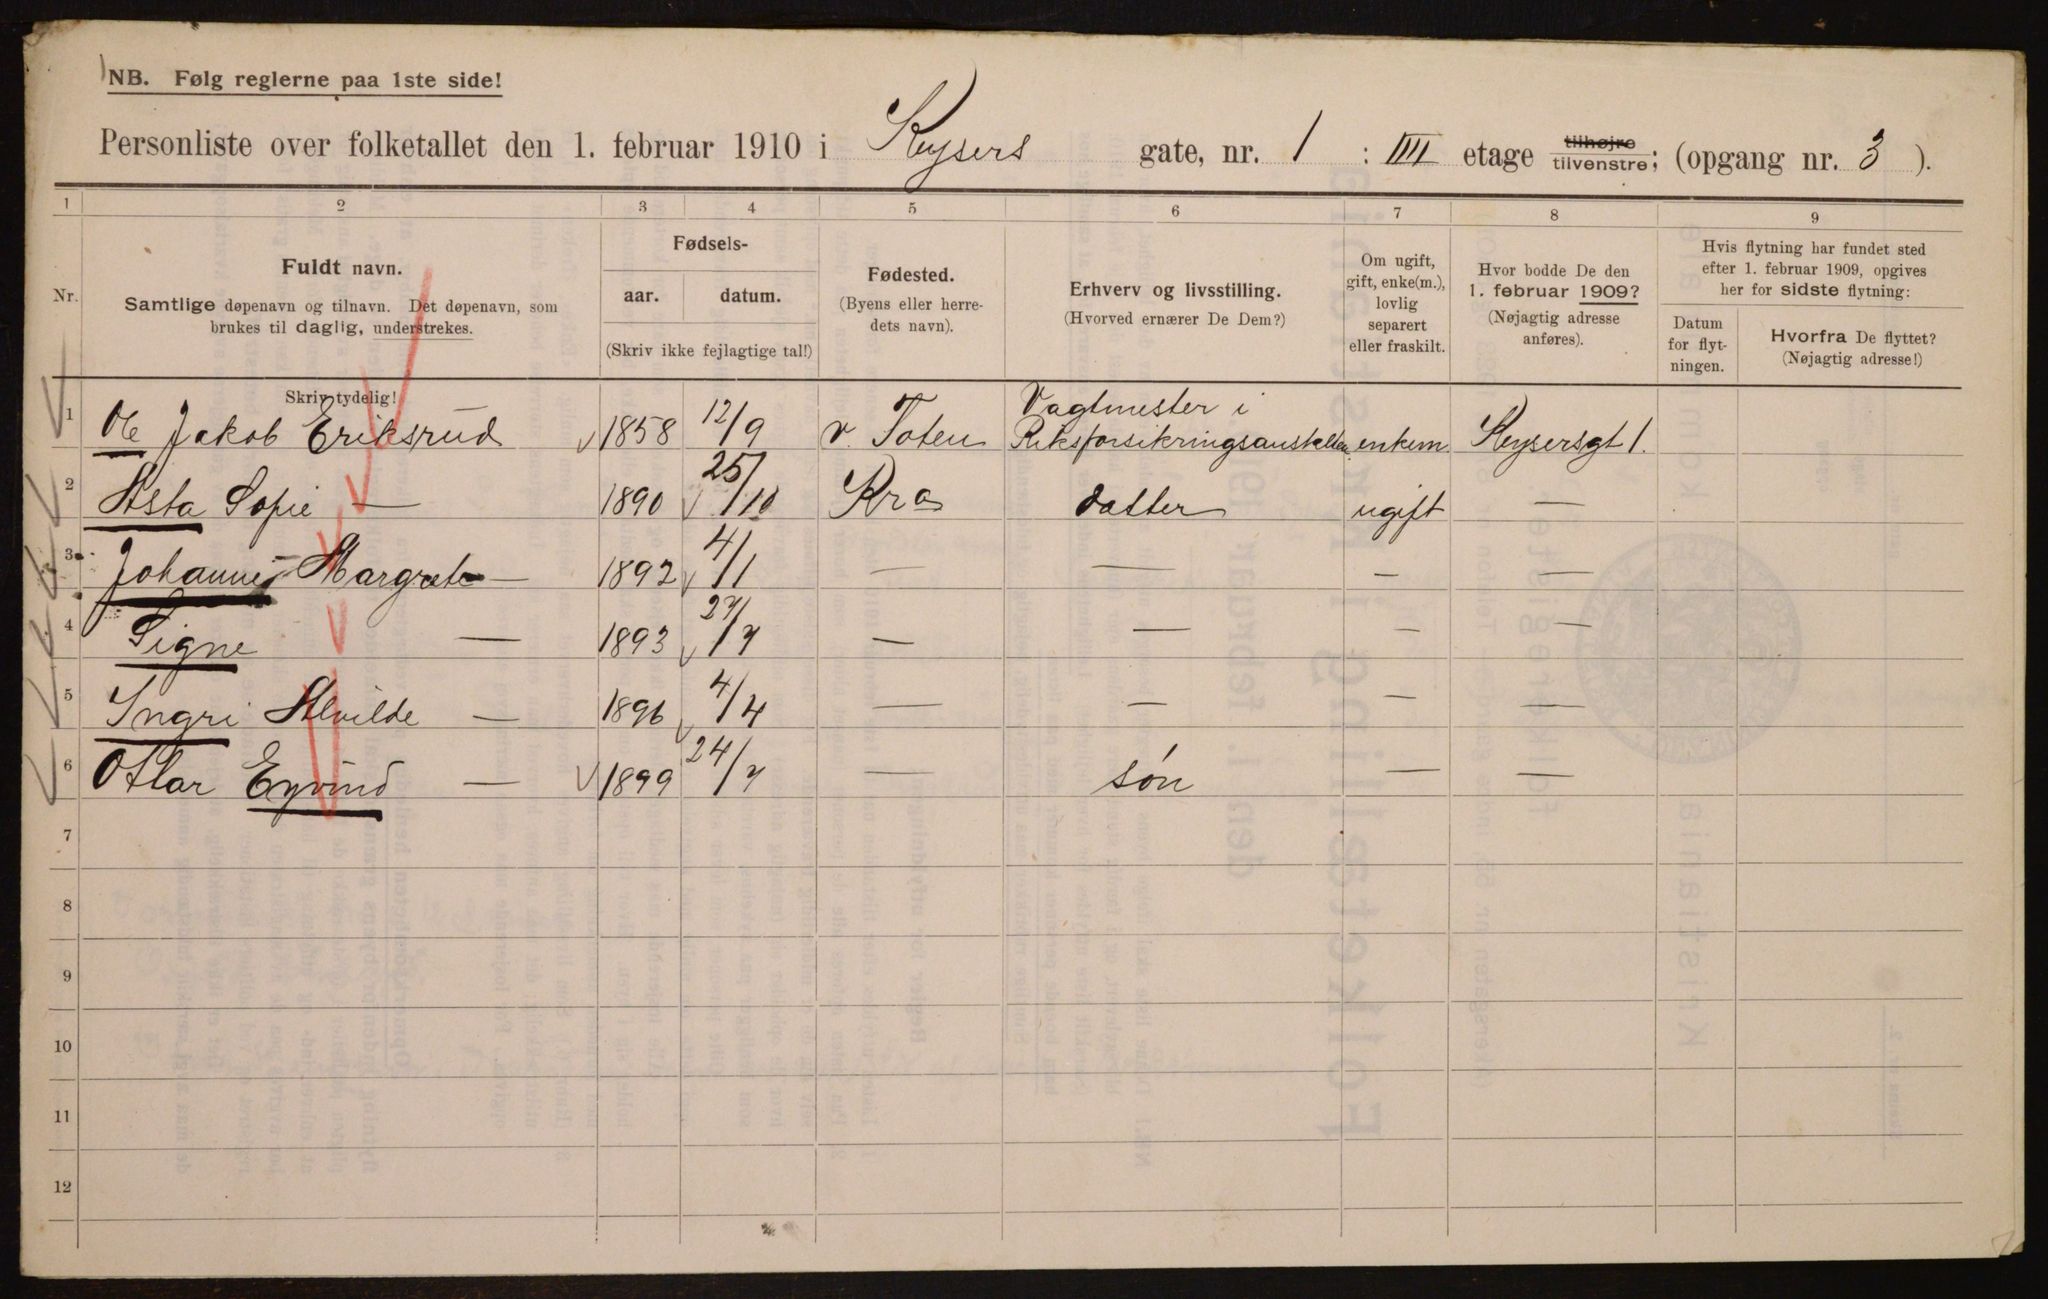 NB. Følg reglerne paa 1ste side!
Personliste over folketallet den 1. februar 1910 i Keysers gate, nr. 1 : IIII etage tilhøjre tilvenstre; (opgang nr. 3 ).
1 2 3 4 5 6 7 8 9
Nr.
Fuldt navn.
Samtlige døpenavn og tilnavn. Det døpenavn, som
brukes til daglig, understrekes.
Skriv tydelig!
Fødsels-
aar. datum.
(Skriv ikke fejlagtige tal!)
Fødested.
(Byens eller herre-
dets navn).
Erhverv og livsstilling.
(Hvorved ernærer De Dem?)
Om ugift,
gift, enke(m.),
lovlig
separert
eller fraskilt.
Hvor bodde De den
1. februar 1909?
(Nøjagtig adresse
anføres).
Hvis flytning har fundet sted
efter 1. februar 1909, opgives
her for sidste flytning:
Datum
for flyt-
ningen.
Hvorfra De flyttet?
(Nøjagtig adresse!)
1 Ole Jakob Eriksrud 1858 12/9 v. Toten Vagtmester i Riksforsikringsanstalten enkem. Keysersgt 1.
2 Asta Sofie — 1890 25/10 Kra datter ugift —
3 Johanne Margrete — 1892 4/1 — — — —
4 Signe — 1893 27/7 — — — —
5 Ingri Alvilde — 1896 4/4 — — — —
6 Ottar Eyvind — 1899 24/7 — søn — —
7
8
9
10
11
12